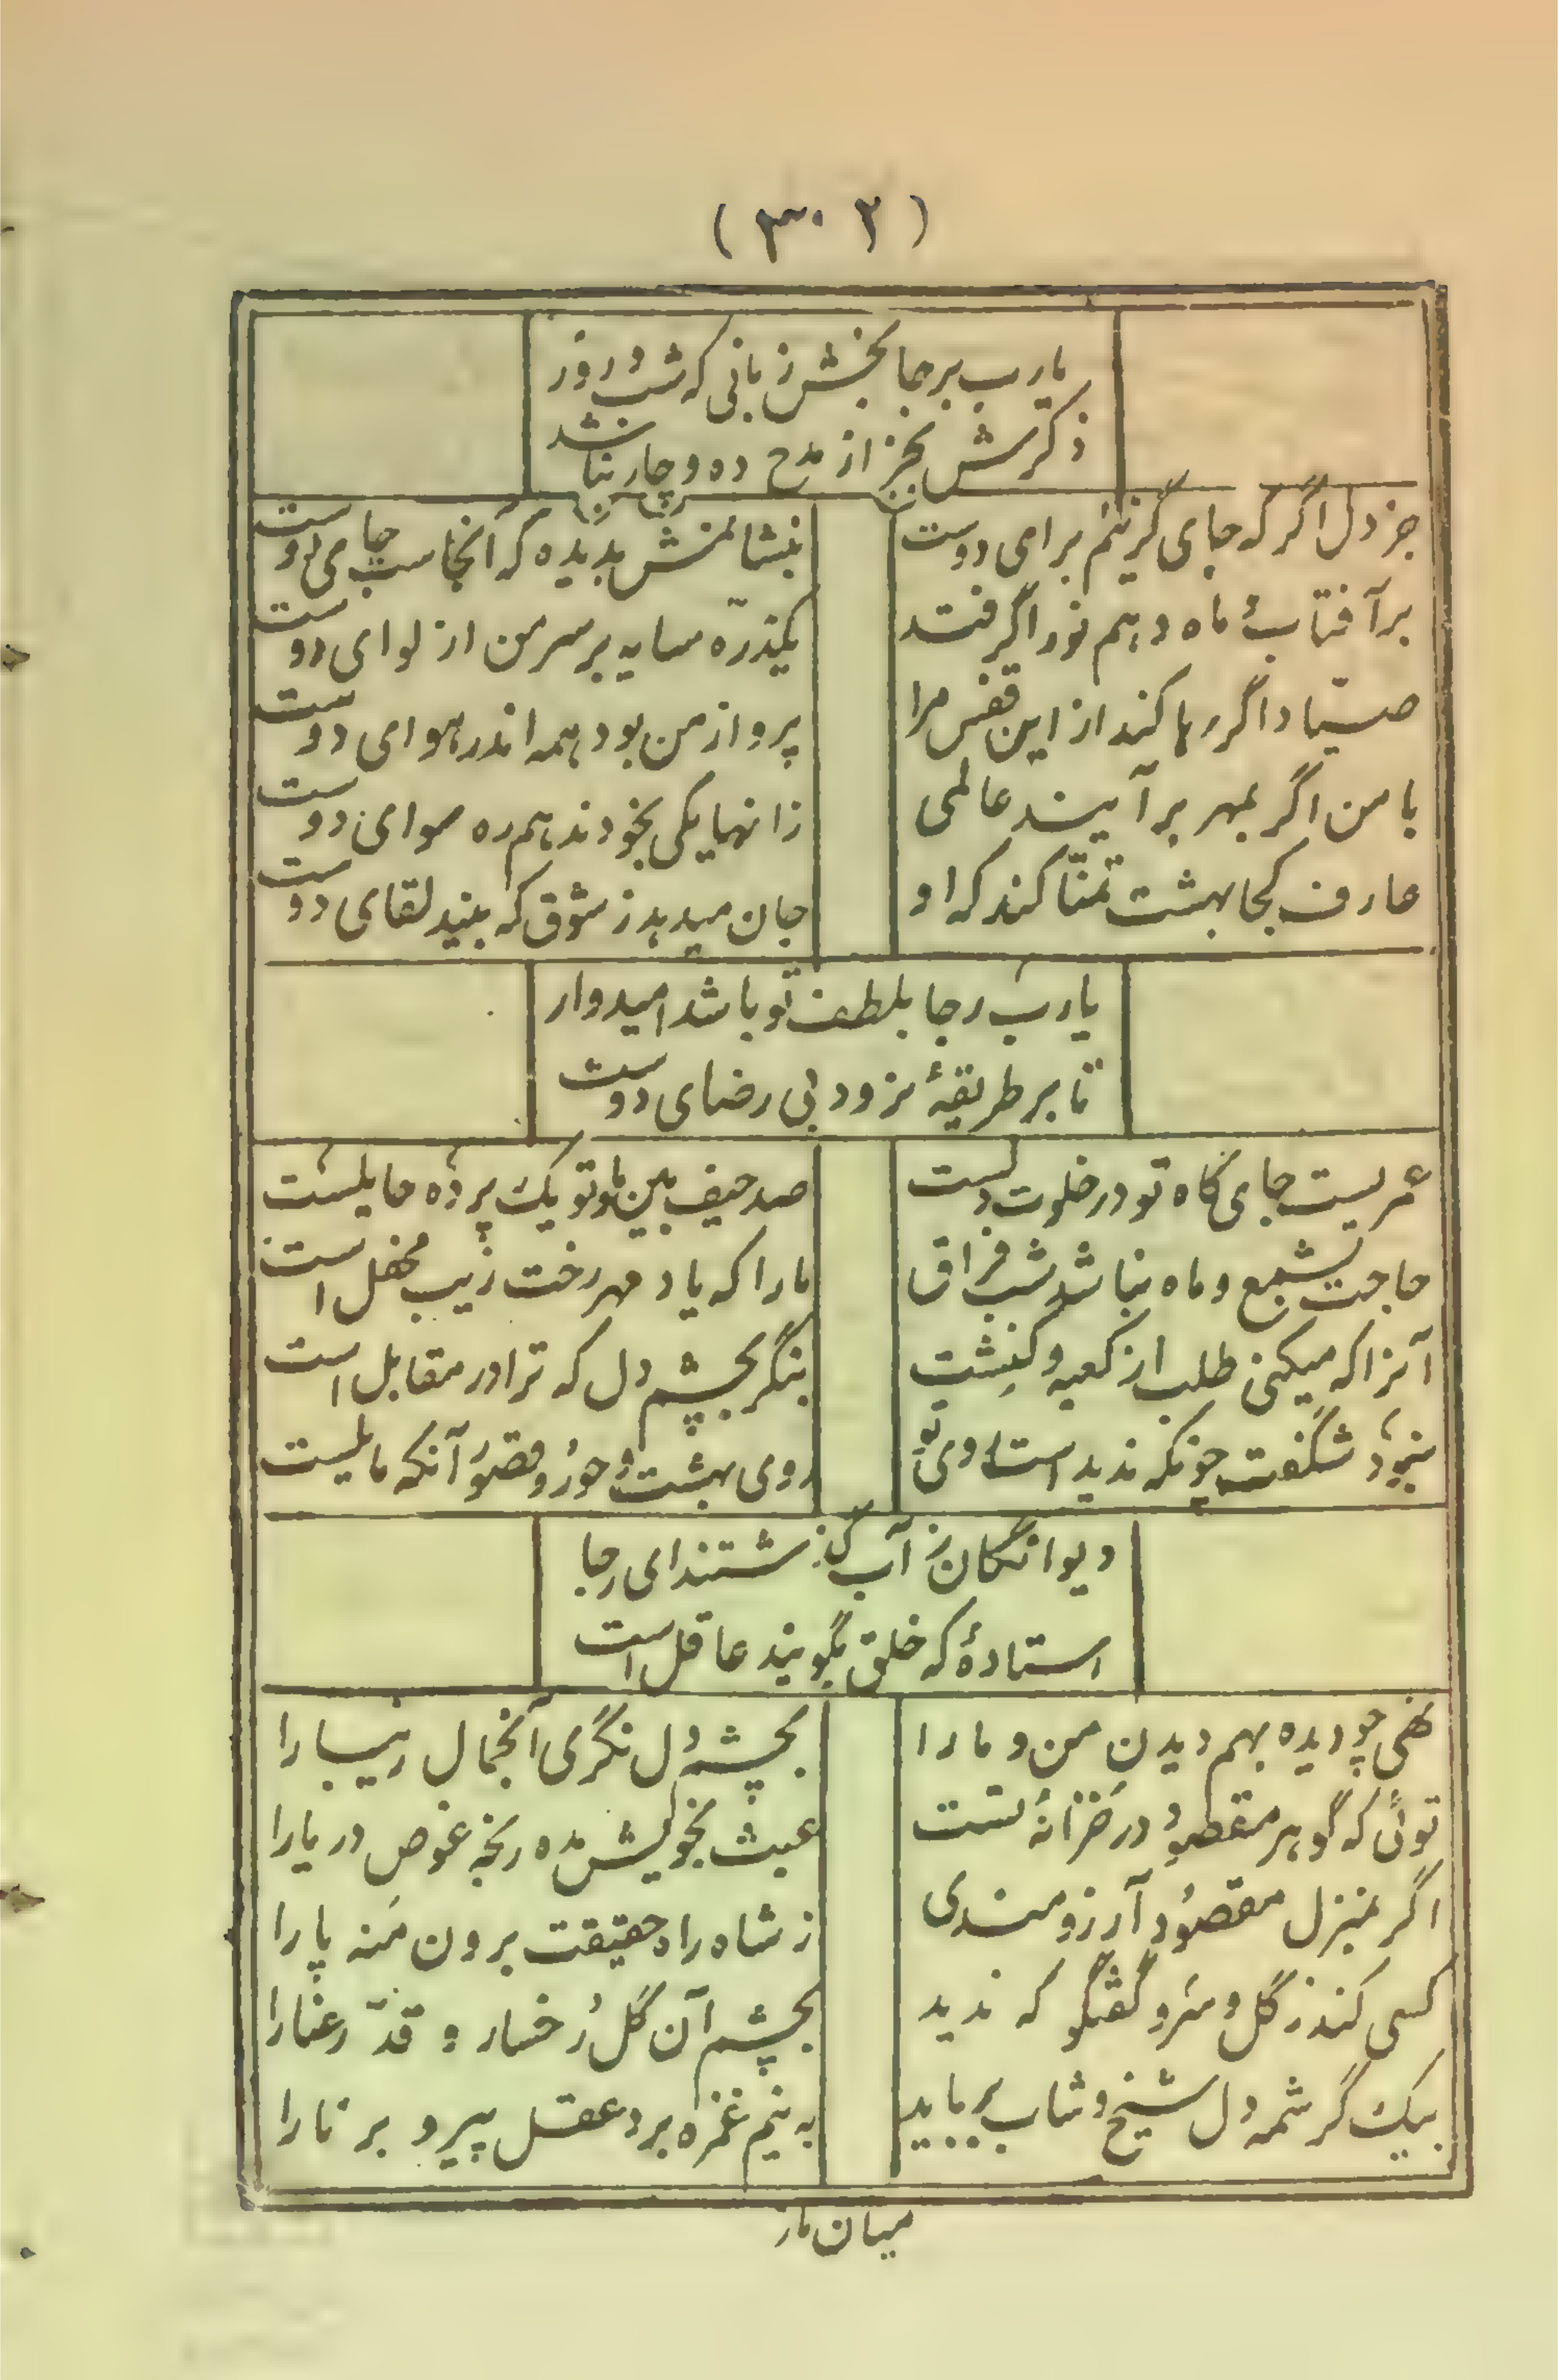 ( ٣٠٢ )
یارب برجا بخش زبانی که شب و روز
ذکرش بجز از مدح ده و چار نباشد
جز دل اگر که جای گزینم برای دوست
ننشانمش بدیده که آنجاست جای دوست
بر آفتاب ماه دهم نور اگر فتد
یکذرّه سایه بر سر من از لوای دوست
صیّاد اگر رها کند از این قفس مرا
پرواز من بود همه اندر هوای دوست
با من اگر بمهر برآیند عالمی
زانها یکی بخود ندهم ره سوای دوست
عارف کجا بهشت تمنّا کند که او
جان میدهد ز شوق که بیند لقای دوست
یارب رجا بلطف تو باشد امیدوار
تا بر طریقهٔ نرود بی رضای دوست
عمریست جای گاه تو در خلوت دلست
صد حیف بین ما و تو یک پرده حایلست
حاجت بشمع و ماه نباشد شب فراق
ما را که یاد مهر رخت زیب محفل است
آنرا که میکنی طلب از کعبه و کنشت
بنگر بچشم دل که ترا در مقابل است
نبود شگفت چونکه ندید است روی تو
روی بهشت و حور و قصور آنکه مایلست
دیوانگان ز آب گذشتند ای رجا
استادهٔ که خلق بگویند عاقل است
نهی چو دیده بهم دیدن من و ما را
بچشم دل نگری آنجمال زیبا را
توئی که گوهر مقصود در خزانهٔ تست
عبث بخویش مده رنجه غوص دریا را
اگر بمنزل مقصود آرزومندی
ز شاه راه حقیقت برون منه پا را
کسی کند ز گل و سرو گفتگو که ندید
بچشم آن گل رخسار و قدّ رعنا را
بیک کرشمه دل شیخ و شاب برباید
به نیم غمزه برد عقل پیر و برنا را
میان ما ز